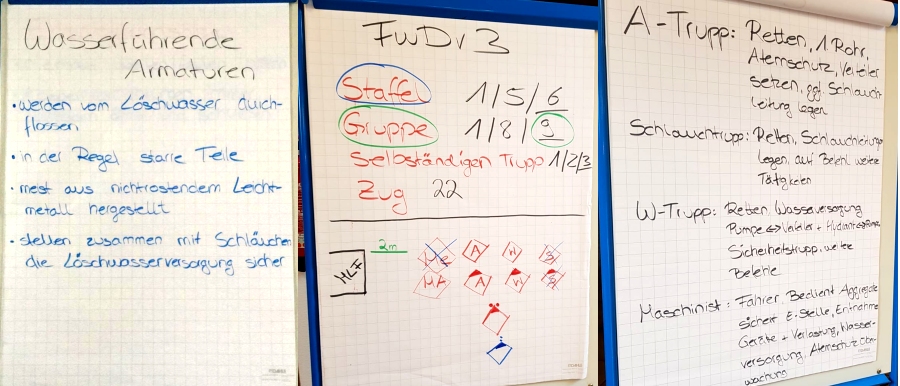 Wasserführende
Armaturen
• werden vom Löschwasser durch-
flossen
• in der Regel starre Teile
• meist aus nichtrostendem Leicht-
metall hergestellt
• stellen zusammen mit Schläuchen
die Löschwasserversorgung sicher
FwDv 3
Staffel 1/5/6
Gruppe 1/8/9
Selbständigen Trupp 1/2/3
Zug 22
HLF
2m
Me A W S
MA A W S
A-Trupp: Retten, 1 Rohr,
Atemschutz, Verteiler
setzen, ggf. Schlauch-
leitung legen
Schlauchtrupp: Retten, Schlauchleitungen
legen, auf Befehl weitere
Tätigkeiten
W-Trupp: Retten, Wasserversorgung
Pumpe ↔ Verteiler + Hydrant ↔ Pumpe
Sicherheitstrupp, weitere
Befehle
Maschinist: Fahrer, Bedient Aggregate
sichert E-Stelle, Entnahme
Geräte + Verlastung, Wasser-
versorgung, Atemschutzüber-
wachung